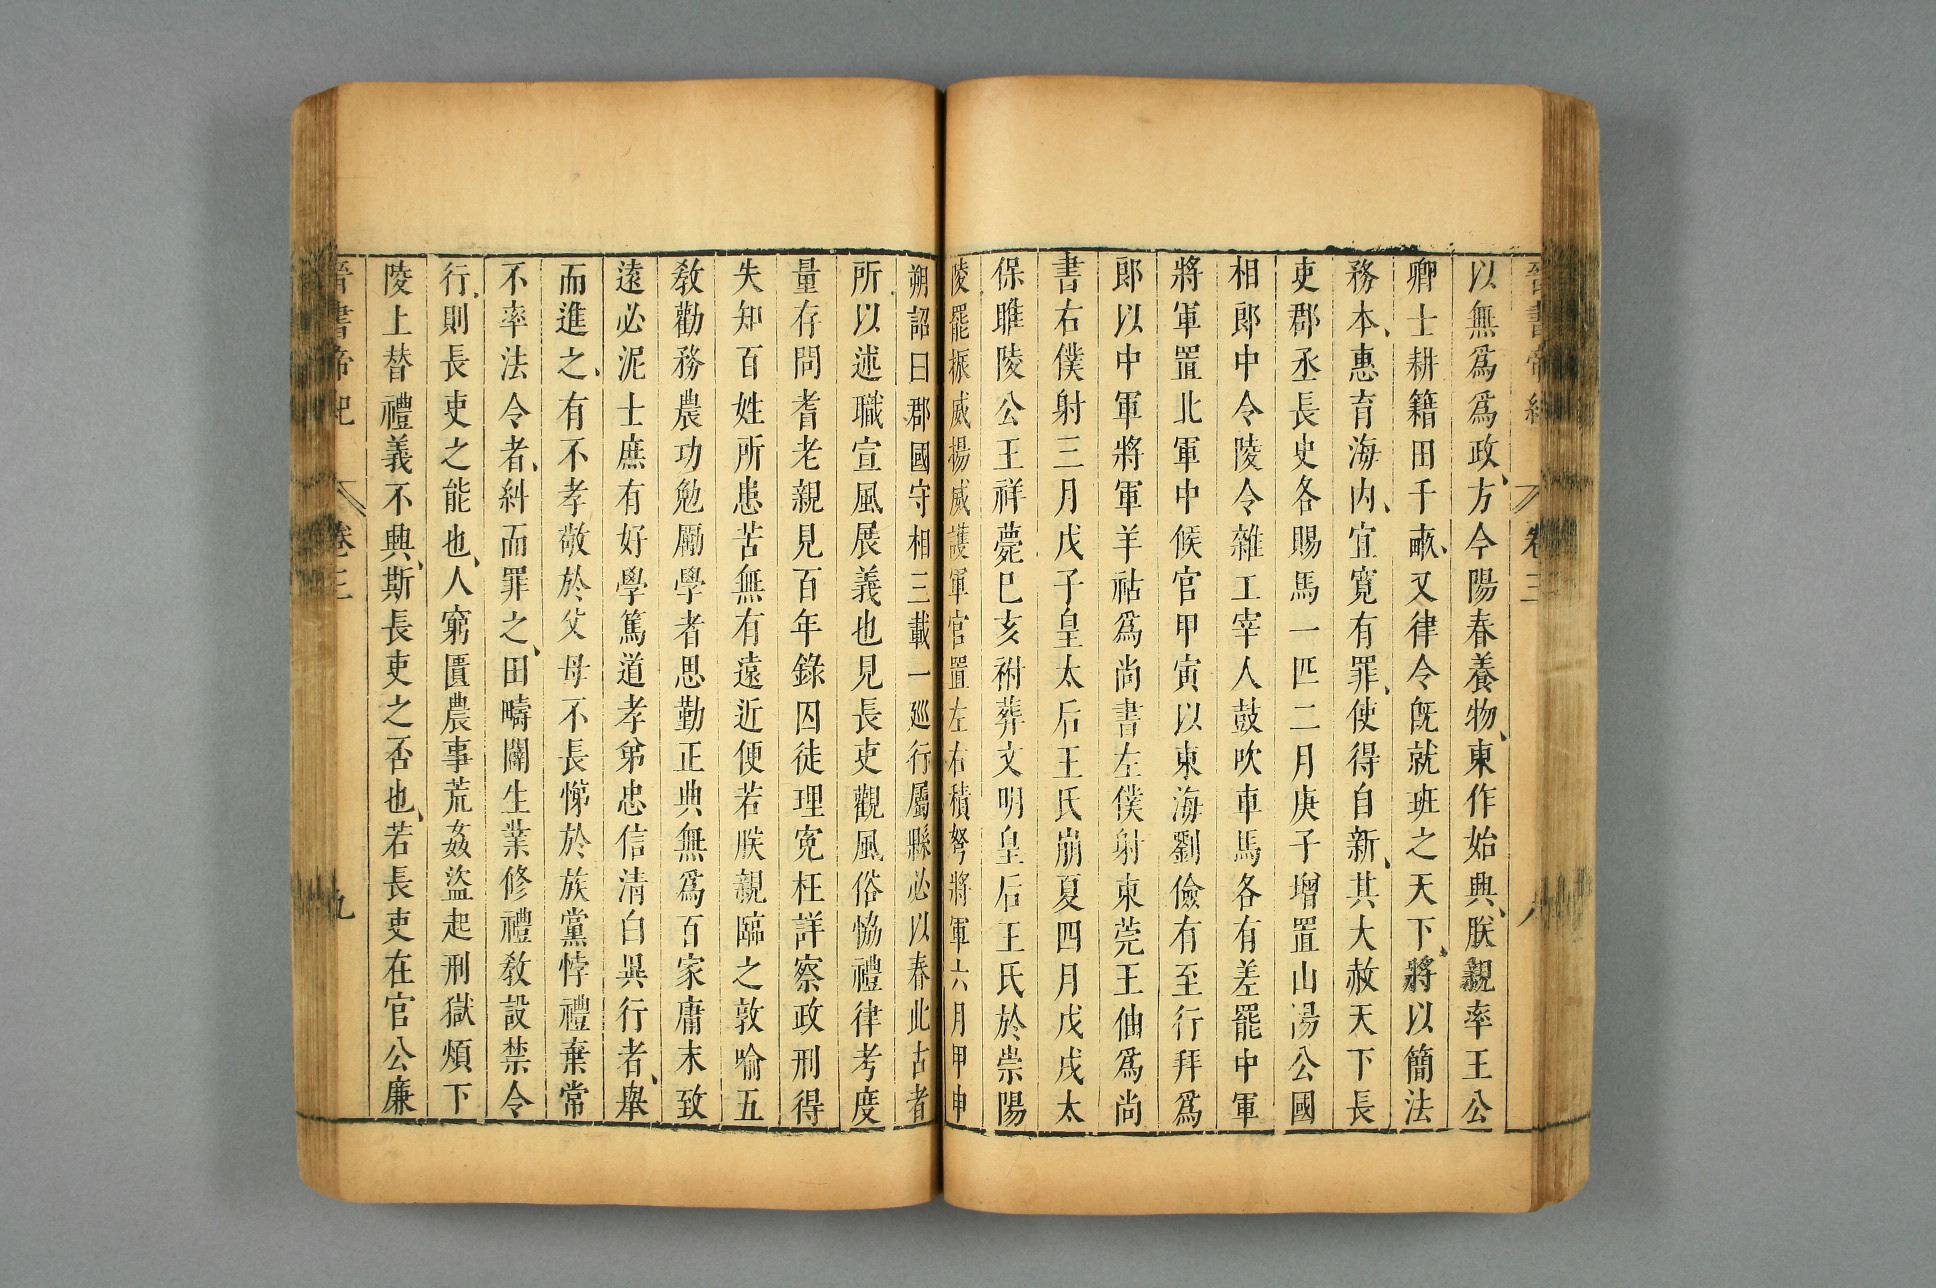 晉書帝紀 卷三 八
以無爲爲政、方今陽春養物、東作始興、朕親率王公
卿士耕籍田千畝、又律令旣就班之天下、將以簡法
務本、惠育海内、宜寛有罪、使得自新、其大赦天下長
吏郡丞長史各賜馬一匹二月庚子增置山湯公國
相郎中令陵令雜工宰人鼓吹車馬各有差罷中軍
將軍置北軍中候官甲寅以東海劉儉有至行拜爲
郎以中軍將軍羊祜爲尚書左僕射東莞王伷爲尚
書右僕射三月戊子皇太后王氏崩夏四月戊戌太
保睢陵公王祥薨巳亥祔葬文明皇后王氏於崇陽
陵罷振威揚威護軍官置左右積弩將軍六月甲申
朔詔曰郡國守相三載一廵行屬縣必以春此古者
所以述職宣風展義也見長吏觀風俗恊禮律考度
量存問耆老親見百年錄囚徒理寃枉詳察政刑得
失知百姓所患苦無有遠近便若朕親臨之敦喻五
敎勸務農功勉勵學者思勤正典無爲百家庸末致
遠必泥士庶有好學篤道孝弟忠信清白異行者、舉
而進之、有不孝敬於父母不長悌於族黨悖禮棄常
不率法令者、糾而罪之、田疇闢生業修禮敎設禁令
行、則長吏之能也、人窮匱農事荒姦盜起刑獄煩下
陵上替禮義不興、斯長吏之否也、若長吏在官公廉
晉書帝紀 卷三 九